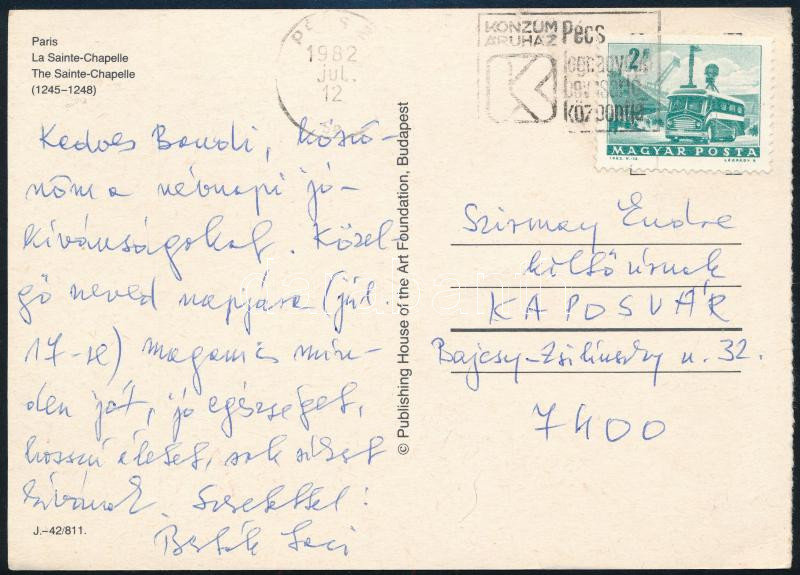 Paris
La Sainte-Chapelle
The Sainte-Chapelle
(1245–1248)
PÉCS
1982
JUL.
12
KONZUM
ÁRUHÁZ
Pécs
legnagyobb
bevásárló
központja
2 Ft
MAGYAR POSTA
Kedves Bandi, köszö-
nöm a névnapi jó-
kívánságokat. Közel-
gő neved napjára (júl.
17-re) magam is min-
den jót, jó egészséget,
hosszú életet, sok sikert
kívánok. Szeretettel:
Bertók Laci
Szirmay Endre
költő úrnak
KAPOSVÁR
Bajcsy-Zsilinszky u. 32.
7400
© Publishing House of the Art Foundation, Budapest
J.–42/811.